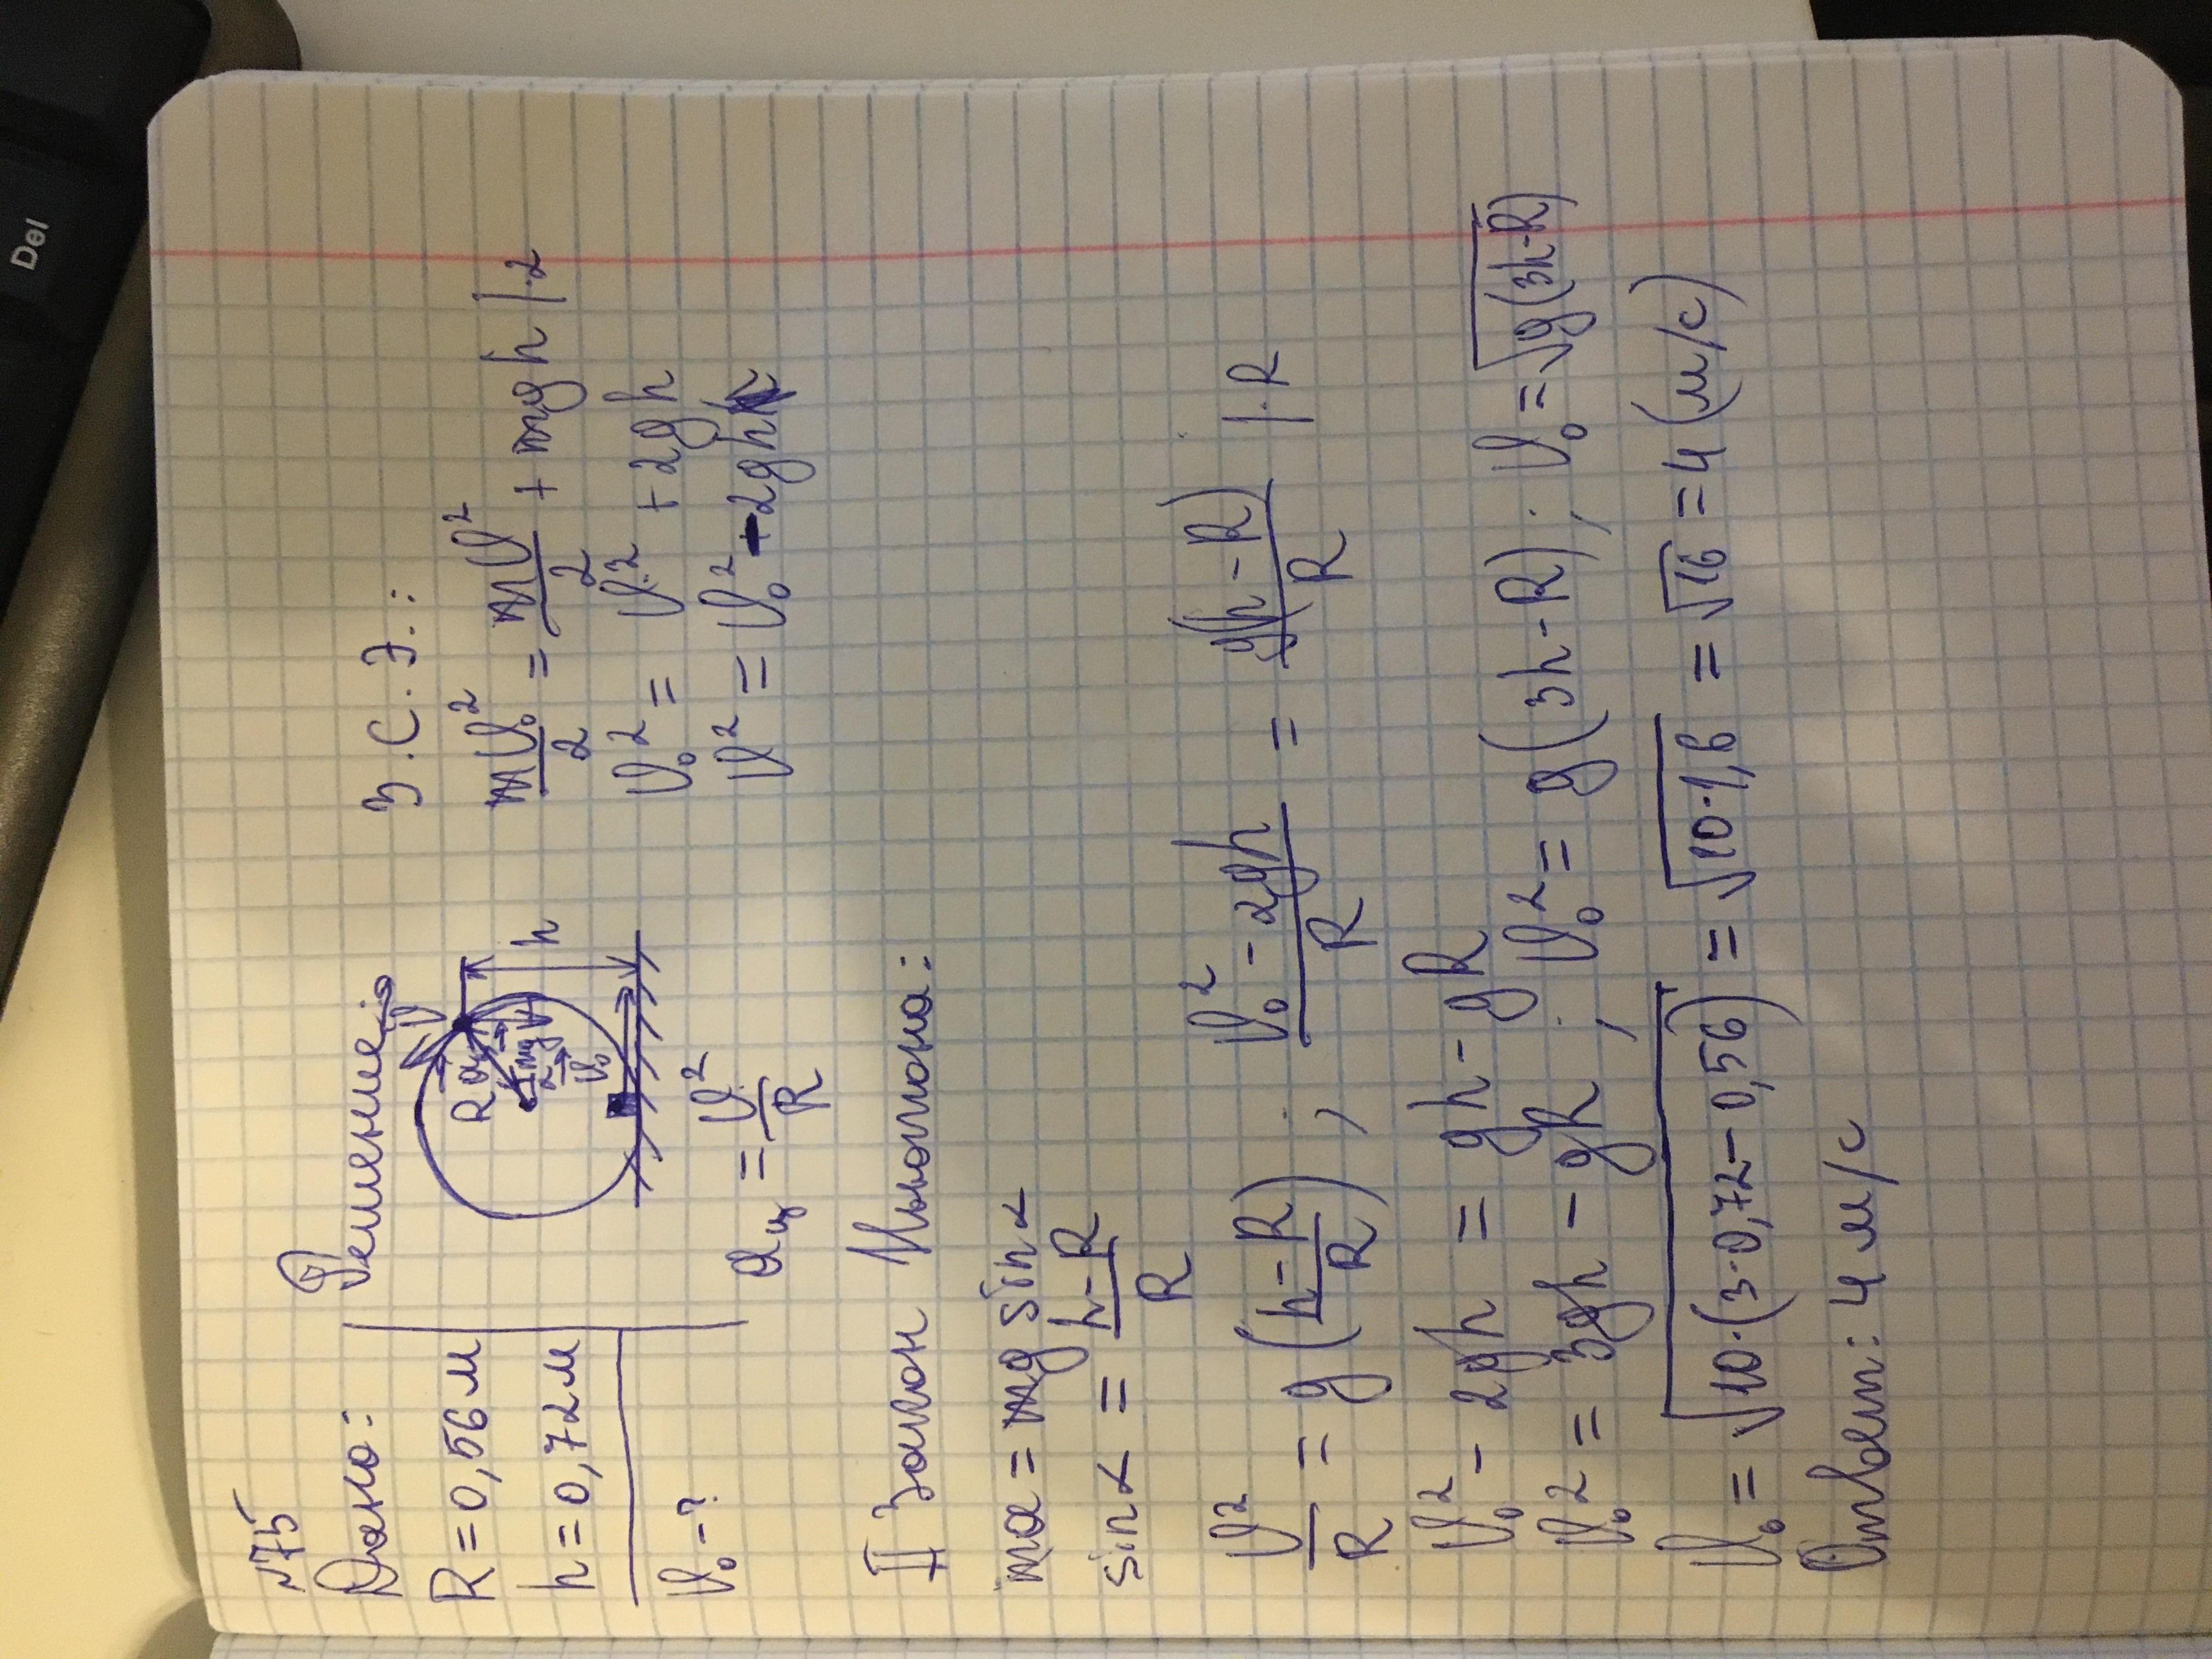 Del
№75
Дано:
R = 0,56 м
h = 0,72 м
υ₀ - ?
Решение
υ
R aц
mg
α
υ₀
h
aц = υ²/R
З.С.Э.:
mυ₀²/2 = mυ²/2 + mgh |·2
υ₀² = υ² + 2gh
υ² = υ₀² - 2gh
II Закон Ньютона:
ma = mg sinα
sinα = (h-R)/R
υ²/R = g((h-R)/R); (υ₀² - 2gh)/R = g(h-R)/R |·R
υ₀² - 2gh = gh - gR
υ₀² = 3gh - gR; υ₀² = g(3h-R); υ₀ = √(g(3h-R))
υ₀ = √(10·(3·0,72-0,56)) = √(10·1,6) = √16 = 4 (м/с)
Ответ: 4 м/с